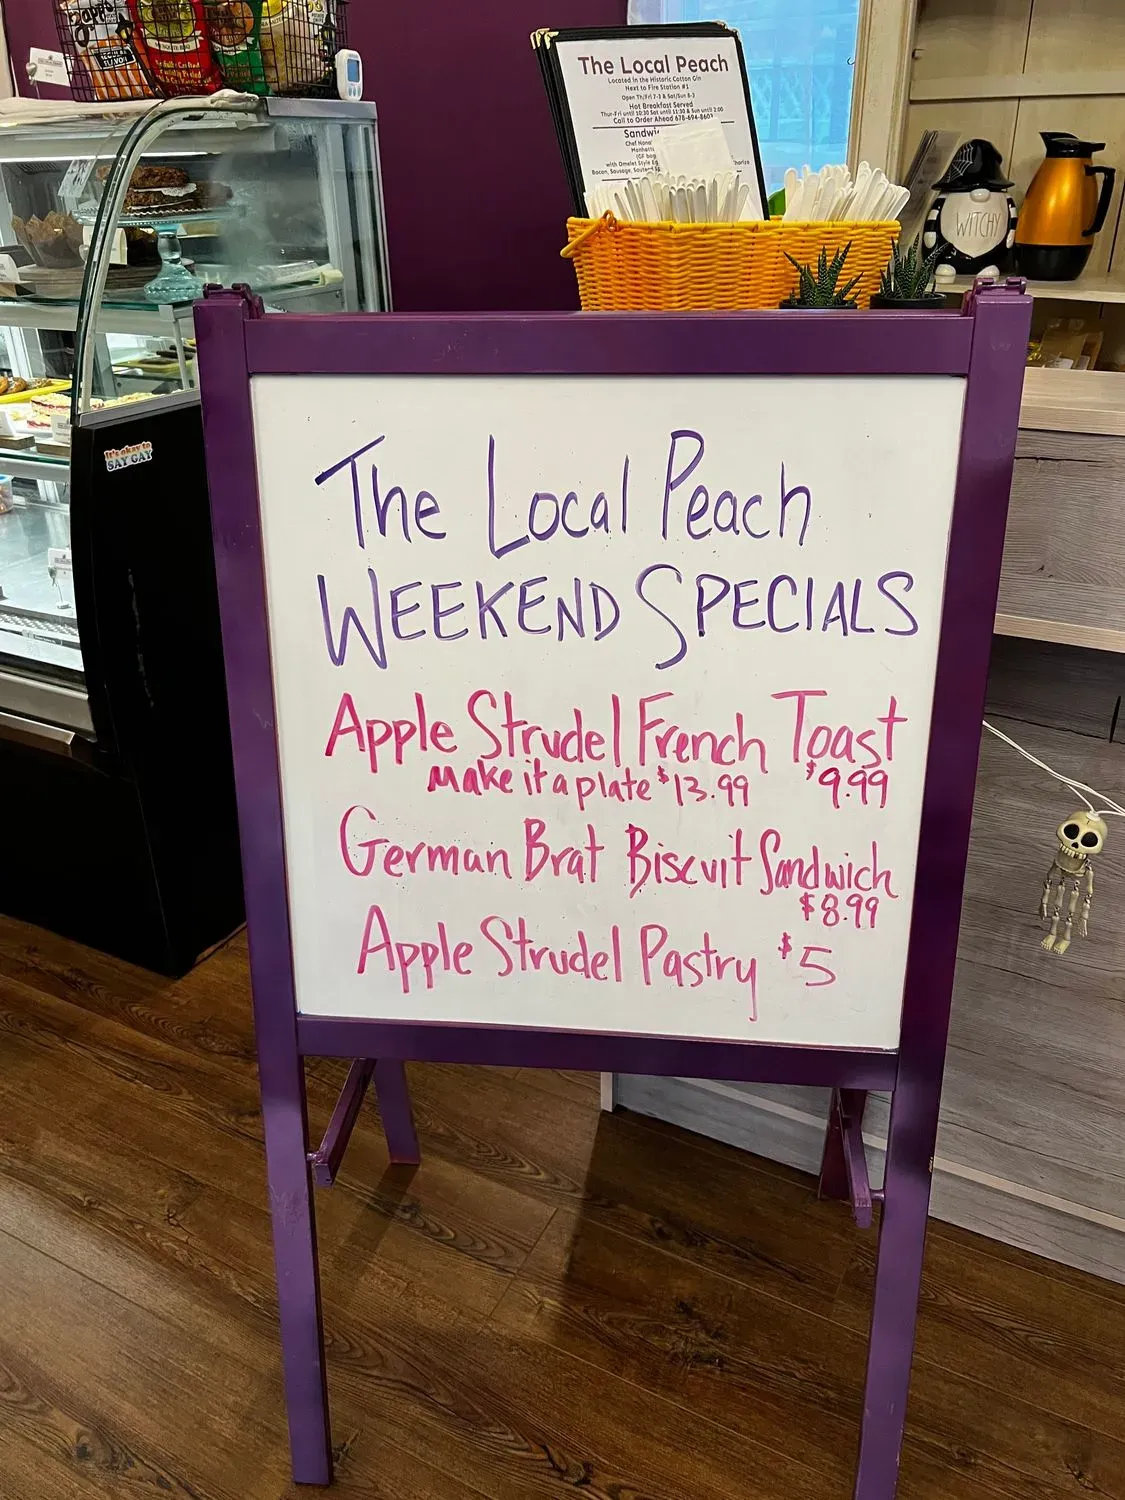 Zapp's
The Local Peach
Located in the Historic Cotton Gin
Next to Fire Station #1
Open Th/Fri 7-3 & Sat/Sun 8-3
Hot Breakfast Served
Thur-Fri until 10:30 Sat until 11:30 & Sun until 2:00
Call to Order Ahead 678-694-8603
Chef Nana'
with Omelet Style Eg
Bacon, Sausage,
WITCHY
It's okay to
SAY GAY
The Local Peach
WEEKEND SPECIALS
Apple Strudel French Toast
make it a plate $13.99 $9.99
German Brat Biscuit Sandwich
$8.99
Apple Strudel Pastry $5